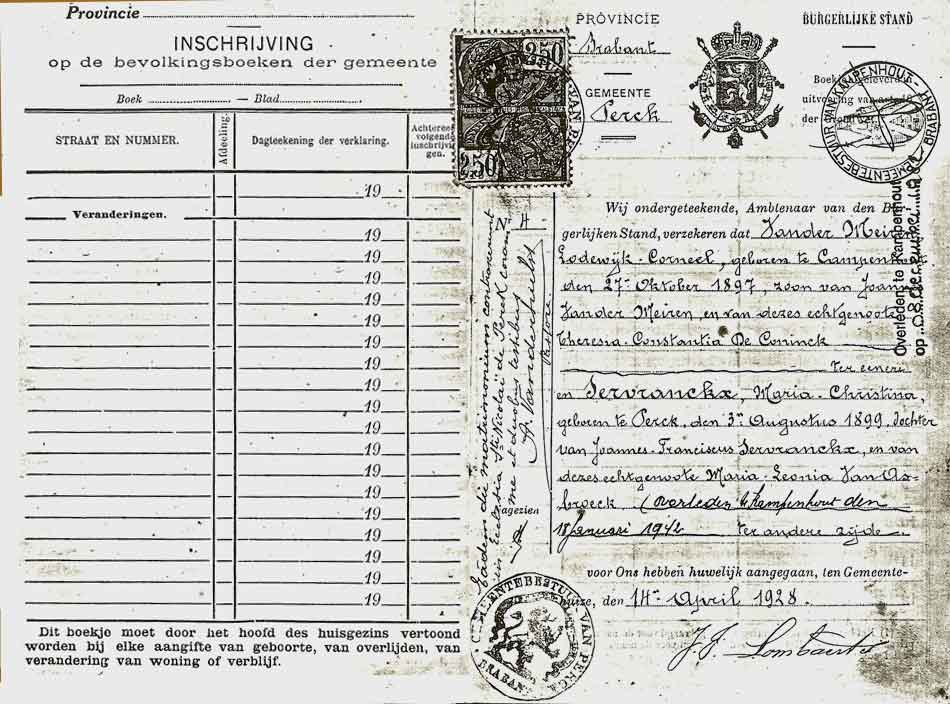 Provincie
INSCHRIJVING
op de bevolkingsboeken der gemeente
Boek — Blad
STRAAT EN NUMMER.
Afdeeling.
Dagteekening der verklaring.
Achtereen
volgende
inschrijvin
gen.
19
Veranderingen.
19
19
19
19
19
19
19
19
19
19
19
19
19
19
19
19
19
19
Dit boekje moet door het hoofd des huisgezins vertoond
worden bij elke aangifte van geboorte, van overlijden, van
verandering van woning of verblijf.
250
250
Eadem die matrimonium contraxerunt
in ecclesia Sti Nicolaï de Perck coram
me et duobus testibus
Pastore
N. 4
agezien
GEMEENTEBESTUUR VAN PERCK
BRABANT
PROVINCIE
Brabant
GEMEENTE
Perck
BURGERLIJKE STAND
GEMEENTEBESTUUR VAN KAMPENHOUT - BRABANT
Overleden te Kampenhout
op
Wij ondergeteekende, Ambtenaar van den B
gerlijken Stand, verzekeren dat Vander Meiren
Lodewijk-Corneel, geboren te Campenhout
den 27n Oktober 1897, zoon van Joannes
Vander Meiren, en van dezes echtgenoote
Theresia-Constantia De Coninck
ter eenere
en Servranckx, Maria-Christina,
geboren te Perck, den 3n Augustus 1899, dochter
van Joannes-Franciscus Servranckx, en van
dezes echtgenoote Maria-Leonia Van As-
broeck (overleden te Kampenhout den
18 Januari 1942 ter andere zijde
voor Ons hebben huwelijk aangegaan, ten Gemeente-
huize, den 14n April 1928.
J. J. Lombaerts